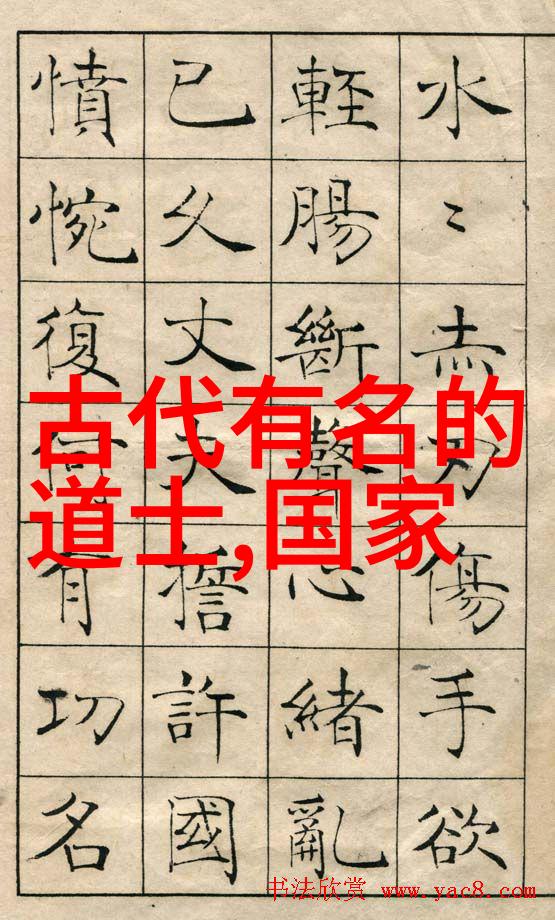 水〻赤刃傷手欲
輕腸斷聲心緒亂
已久丈夫誓許國
憤惋復何有功名
古代有名的
道士,国家
书法欣赏 www.yac8.com